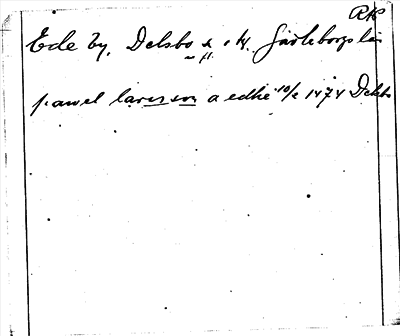 RAP
Ede by, Delsbo s. o. tg. Gävleborgs län
pawel larisson a edhe 10/2 1474 Delsbo